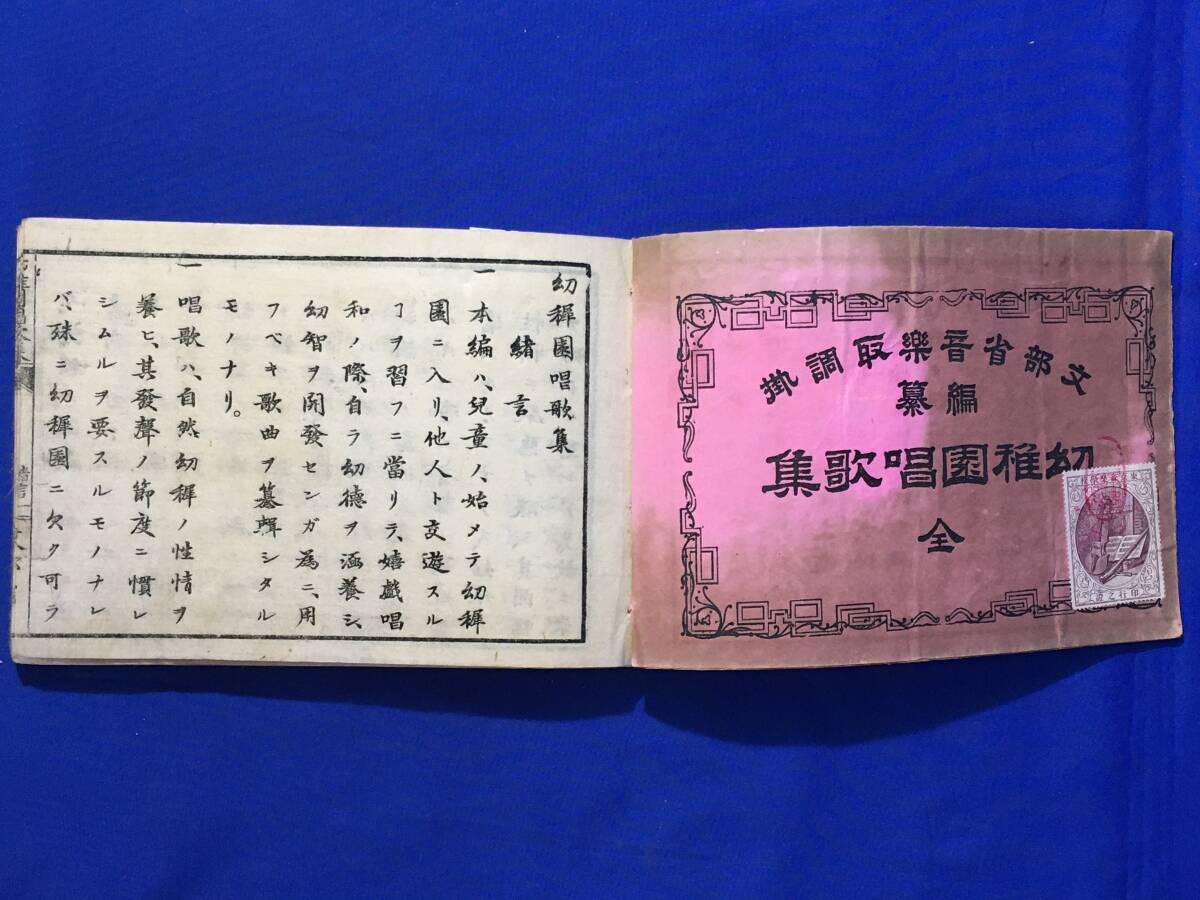 文部省音樂取調掛
編纂
幼稚園唱歌集
全
印行之證
幼穉園唱歌集
緒言
一 本編ハ、兒童ノ、始メテ幼穉
園ニ入リ、他人ト交遊スル
ヿヲ習フニ當リテ、嬉戯唱
和ノ際、自ラ幼德ヲ涵養シ、
幼智ヲ開發センガ為ニ、用
フベキ歌曲ヲ纂輯シタル
モノナリ。
一 唱歌ハ、自然幼穉ノ性情ヲ
養ヒ、其發聲ノ節度ニ慣レ
シムルヲ要スルモノナレ
バ、殊ニ幼穉園ニ欠ク可ラ